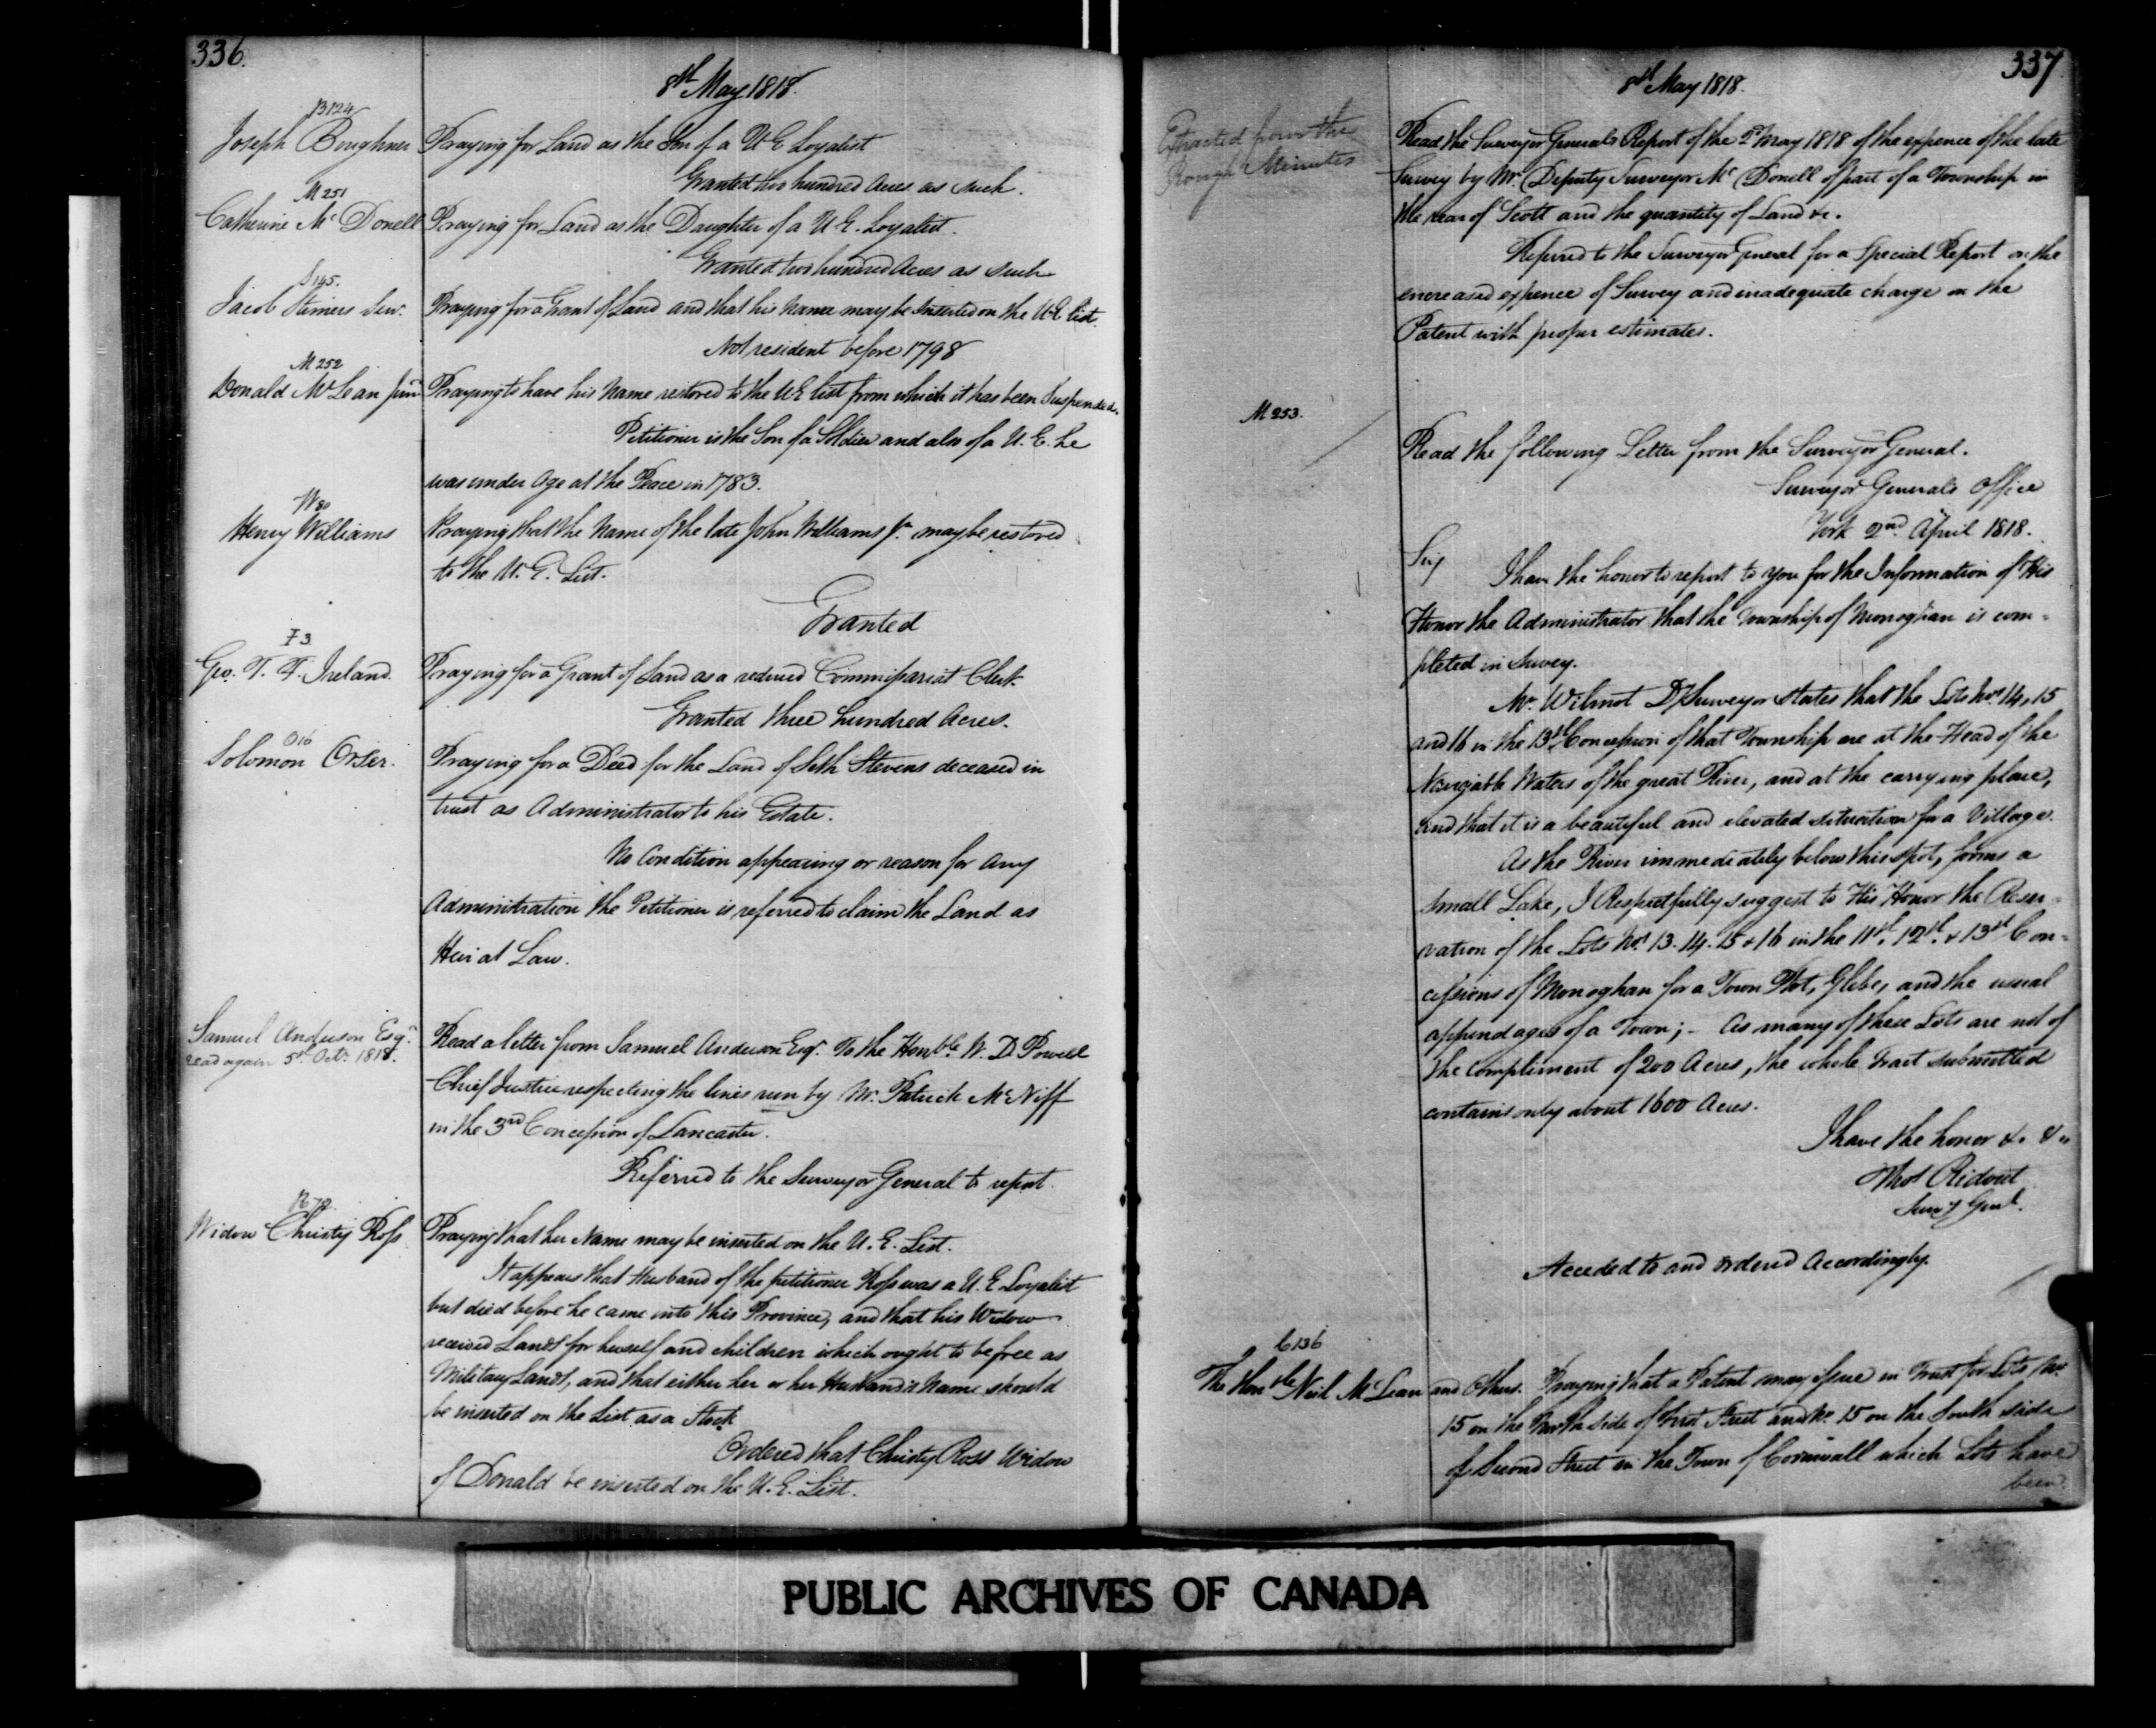 336.
8th May 1818.
B124
Joseph Boughner Praying for Land as the Son of a U E Loyalist
Granted two hundred Acres as such.
M 251
Catherine Mc Donell Praying for Land as the Daughter of a U. E. Loyalist.
Granted two hundred Acres as such
S 145.
Jacob Senr. Praying for a Grant of Land and that his Name may be Inserted on the U E list.
Not resident before 1798
M 252
Donald McLean Junr Praying to have his Name restored to the U E list from which it has been Suspended.
Petitioner is the Son of a Soldier and also of a U. E. he
was under Age at the Peace in 1783.
W 80
Henry Williams Praying that the Name of the late John Williams Jr. may be restored
to the U. E. List.
Granted
I 3
Geo. T. F. Ireland. Praying for a Grant of Land as a reduced Commissariat Clerk
Granted three hundred Acres.
O 16
Solomon Orser. Praying for a Deed for the Land of Seth Stevens deceased in
trust as Administrator to his Estate.
No Condition appearing or reason for any
Administration the Petitioner is referred to claim the Land as
Heir at Law.
Samuel Anderson Esqr. Read a letter from Samuel Anderson Esqr. To the Honble. W. D. Powell
read again 5th Octr. 1818.
Chief Justice respecting the lines run by Mr. Patrick McNiff
in the 3rd Concession of Lancaster.
Referred to the Surveyor General to report.
Widow Christy Ross Praying that her Name may be inserted on the U. E. List.
It appears that Husband of the petitioner Ross was a U. E Loyalist
but died before he came into this Province, and that his Widow
received Lands for herself and children which ought to be free as
Military Lands, and that either her or her Husband's Name should
be inserted on the List as a Stock
Ordered that Christy Ross Widow
of Donald be inserted on the U. E. List.
337
8th May 1818.
Extracted from the
Rough Minutes
Read the Surveyor Generals Report of the 2d May 1818 of the expence of the late
Survey by Mr. Deputy Surveyor Mc Donell of part of a Township in
the rear of Scott and the quantity of Land &c.
Referred to the Surveyor General for a Special Report on the
encreased expence of Survey and inadequate charge on the
Patent with proper estimates.
M 253.
Read the following Letter from the Surveyor General.
Surveyor Generals Office
York 2nd April 1818.
Sir
I have the honor to report to you for the Information of His
Honor the Administrator that the Township of Monoghan is com-
pleted in Survey.
Mr. Wilmot Dy Surveyor states that the Lots Nos. 14, 15
and 16 in the 13th Concession of that Township are at the Head of the
Navigable Waters of the great River, and at the carrying place,
and that it is a beautiful and elevated situation for a Village.
As the River immediately below this spot, forms a
small Lake, I Respectfully suggest to His Honor the Reser-
vation of the Lots Nos. 13. 14. 15 & 16 in the 11th, 12th & 13th Con-
cessions of Monoghan for a Town Plot, Glebe, and the usual
appendages of a Town; - As many of these Lots are not of
the compliment of 200 Acres, the whole tract submitted
contains only about 1600 Acres.
I have the honor &c &c
Thos Ridout
Survr Genl.
Acceded to and ordered Accordingly.
C 136
The Honble Neil McLean and Others. Praying that a Patent may Issue in Trust for Lots No.
15 on the North side of First Street and No. 15 on the South side
of Second Street in the Town of Cornwall which Lots have
been
PUBLIC ARCHIVES OF CANADA